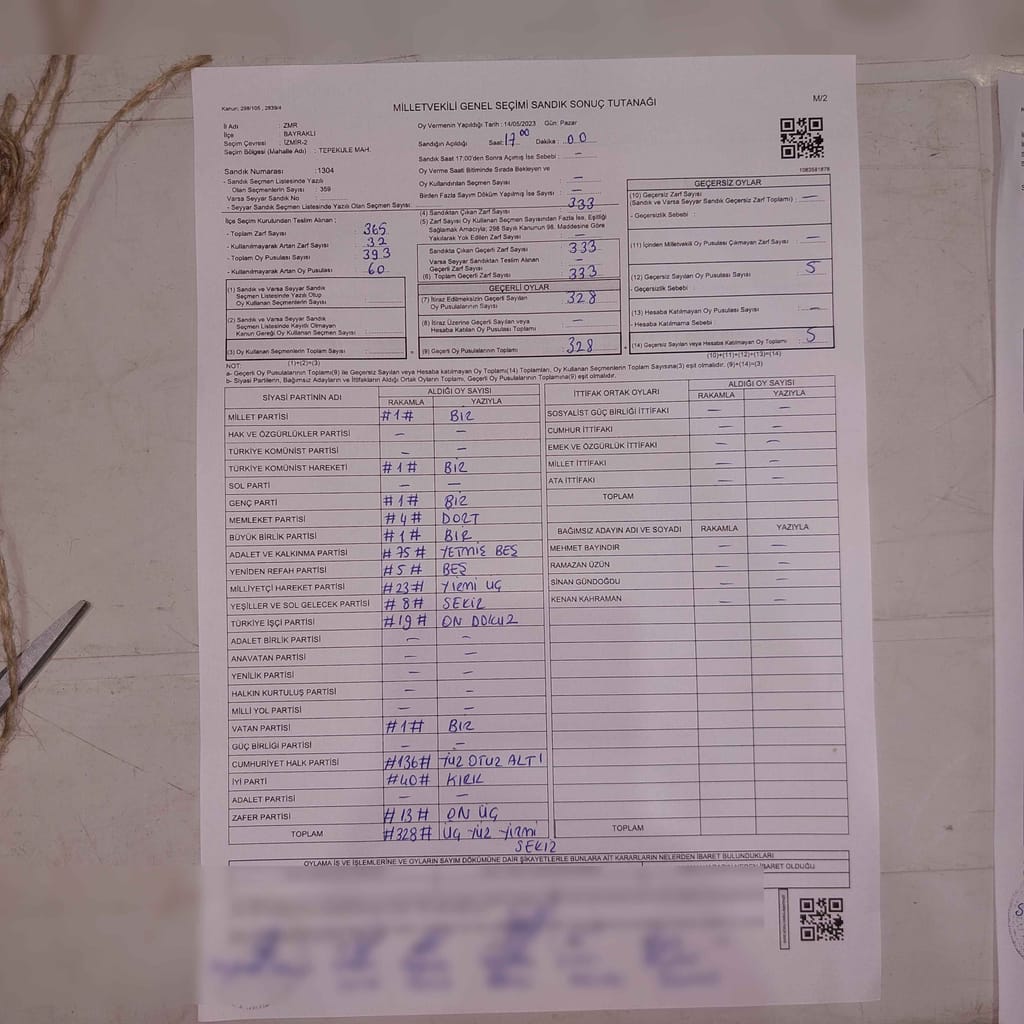 Kanun: 298/105 , 2839/4
MİLLETVEKİLİ GENEL SEÇİMİ SANDIK SONUÇ TUTANAĞI
M/2
İl Adı : ZMR
İlçe : BAYRAKLI
Seçim Çevresi : İZMİR-2
Seçim Bölgesi (Mahalle Adı) : TEPEKULE MAH.
Sandık Numarası : 1304
- Sandık Seçmen Listesinde Yazılı
Olan Seçmenlerin Sayısı : 359
Varsa Seyyar Sandık No
- Seyyar Sandık Seçmen Listesinde Yazılı Olan Seçmen Sayısı
İlçe Seçim Kurulundan Teslim Alınan ;
- Toplam Zarf Sayısı : 365
- Kullanılmayarak Artan Zarf Sayısı : 32
- Toplam Oy Pusulası Sayısı : 393
- Kullanılmayarak Artan Oy Pusulası : 60
(1) Sandık ve Varsa Seyyar Sandık
Seçmen Listesinde Yazılı Olup
Oy Kullanan Seçmenlerin Sayısı :
(2) Sandık ve Varsa Seyyar Sandık
Seçmen Listesinde Kayıtlı Olmayan
Kanun Gereği Oy Kullanan Seçmen Sayısı :
(3) Oy Kullanan Seçmenlerin Toplam Sayısı :
(1)+(2)=(3)
Oy Vermenin Yapıldığı Tarih : 14/05/2023 Gün: Pazar
Sandığın Açıldığı Saat: 17 00 Dakika : 00
Sandık Saat 17:00'den Sonra Açılmış İse Sebebi : -
Oy Verme Saati Bitiminde Sırada Bekleyen ve
Oy Kullandırılan Seçmen Sayısı : -
Birden Fazla Sayım Döküm Yapılmış İse Sayısı : -
(4) Sandıktan Çıkan Zarf Sayısı : 333
(5) Zarf Sayısı Oy Kullanan Seçmen Sayısından Fazla İse, Eşitliği
Sağlamak Amacıyla; 298 Sayılı Kanunun 98. Maddesine Göre
Yakılarak Yok Edilen Zarf Sayısı : -
Sandıkta Çıkan Geçerli Zarf Sayısı : 333
Varsa Seyyar Sandıktan Teslim Alınan
Geçerli Zarf Sayısı : -
(6) Toplam Geçerli Zarf Sayısı : 333
GEÇERLİ OYLAR
(7) İtiraz Edilmeksizin Geçerli Sayılan
Oy Pusulalarının Sayısı : 328
(8) İtiraz Üzerine Geçerli Sayılan veya
Hesaba Katılan Oy Pusulası Toplamı : -
(9) Geçerli Oy Pusulalarının Toplamı : 328
1083581878
GEÇERSİZ OYLAR
(10) Geçersiz Zarf Sayısı
(Sandık ve Varsa Seyyar Sandık Geçersiz Zarf Toplamı) : -
- Geçersizlik Sebebi :
(11) İçinden Milletvekili Oy Pusulası Çıkmayan Zarf Sayısı : -
(12) Geçersiz Sayılan Oy Pusulası Sayısı : 5
- Geçersizlik Sebebi :
(13) Hesaba Katılmayan Oy Pusulası Sayısı : -
- Hesaba Katılmama Sebebi :
(14) Geçersiz Sayılan veya Hesaba Katılmayan Oy Toplamı : 5
(10)+(11)+(12)+(13)=(14)
NOT:
a- Geçerli Oy Pusulalarının Toplamı(9) ile Geçersiz Sayılan veya Hesaba Katılmayan Oy Toplamı(14) Toplamları, Oy Kullanan Seçmenlerin Toplam Sayısına(3) eşit olmalıdır. (9)+(14)=(3)
b- Siyasi Partilerin, Bağımsız Adayların ve İttifakların Aldığı Ortak Oyların Toplamı, Geçerli Oy Pusulalarının Toplamına(9) eşit olmalıdır.
SİYASİ PARTİNİN ADI ALDIĞI OY SAYISI
RAKAMLA YAZIYLA
MİLLET PARTİSİ #1# BİR
HAK VE ÖZGÜRLÜKLER PARTİSİ - -
TÜRKİYE KOMÜNİST PARTİSİ - -
TÜRKİYE KOMÜNİST HAREKETİ #1# BİR
SOL PARTİ - -
GENÇ PARTİ #1# BİR
MEMLEKET PARTİSİ #4# DÖRT
BÜYÜK BİRLİK PARTİSİ #1# BİR
ADALET VE KALKINMA PARTİSİ #75# YETMİŞ BEŞ
YENİDEN REFAH PARTİSİ #5# BEŞ
MİLLİYETÇİ HAREKET PARTİSİ #23# YİRMİ ÜÇ
YEŞİLLER VE SOL GELECEK PARTİSİ #8# SEKİZ
TÜRKİYE İŞÇİ PARTİSİ #19# ON DOKUZ
ADALET BİRLİK PARTİSİ - -
ANAVATAN PARTİSİ - -
YENİLİK PARTİSİ - -
HALKIN KURTULUŞ PARTİSİ - -
MİLLİ YOL PARTİSİ - -
VATAN PARTİSİ #1# BİR
GÜÇ BİRLİĞİ PARTİSİ - -
CUMHURİYET HALK PARTİSİ #136# YÜZ OTUZ ALTI
İYİ PARTİ #40# KIRK
ADALET PARTİSİ - -
ZAFER PARTİSİ #13# ON ÜÇ
TOPLAM #328# ÜÇ YÜZ YİRMİ
SEKİZ
İTTİFAK ORTAK OYLARI ALDIĞI OY SAYISI
RAKAMLA YAZIYLA
SOSYALİST GÜÇ BİRLİĞİ İTTİFAKI - -
CUMHUR İTTİFAKI - -
EMEK VE ÖZGÜRLÜK İTTİFAKI - -
MİLLET İTTİFAKI - -
ATA İTTİFAKI - -
TOPLAM
BAĞIMSIZ ADAYIN ADI VE SOYADI RAKAMLA YAZIYLA
MEHMET BAYINDIR - -
RAMAZAN ÜZÜN - -
SİNAN GÜNDOĞDU - -
KENAN KAHRAMAN - -
TOPLAM
OYLAMA İŞ VE İŞLEMLERİNE VE OYLARIN SAYIM DÖKÜMÜNE DAİR ŞİKAYETLERLE BUNLARA AİT KARARLARIN NELERDEN İBARET BULUNDUKLARI
İBARET OLDUĞU